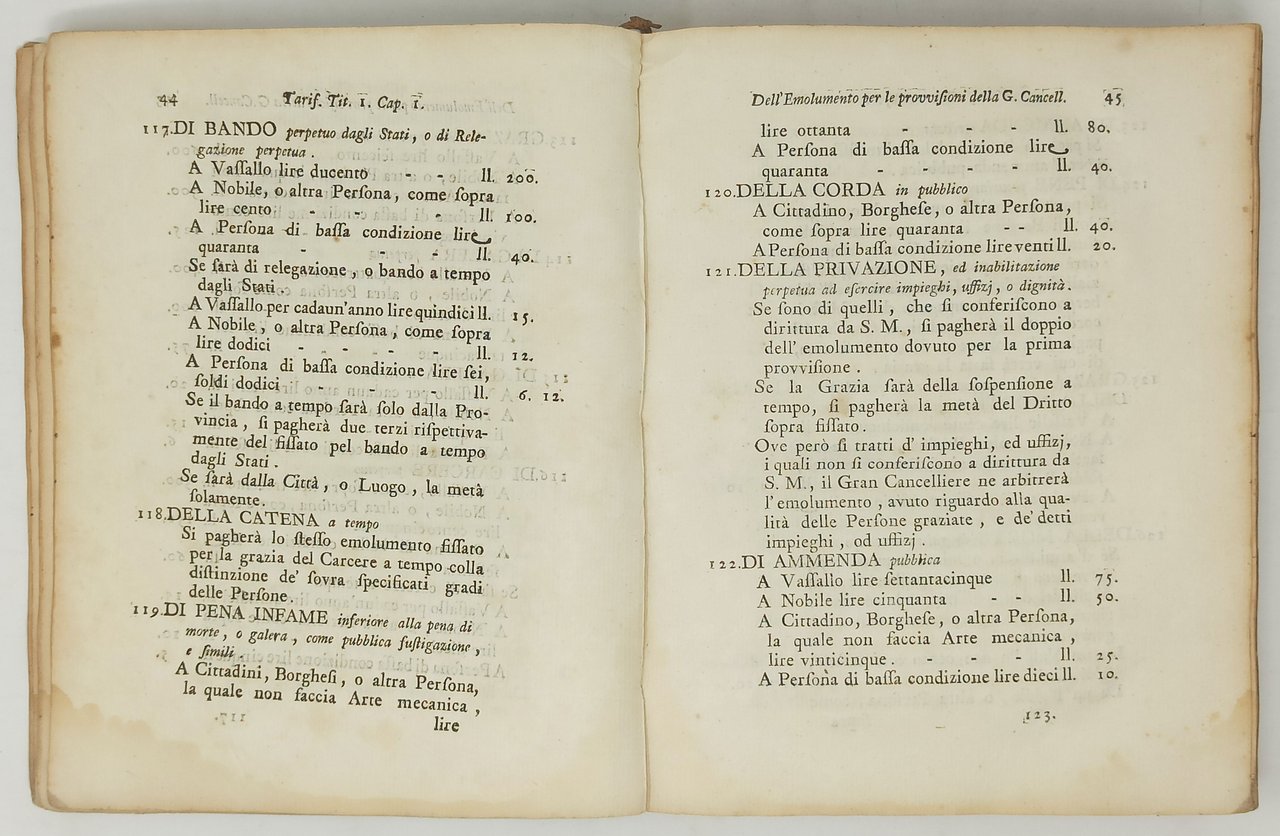 44 Tarif. Tit. 1. Cap. 1.
117.DI BANDO perpetuo dagli Stati, o di Rele-
gazione perpetua.
A Vaſſallo lire ducento - - ll. 200.
A Nobile, o altra Perſona, come ſopra
lire cento - - - ll. 100.
A Perſona di baſſa condizione lire
quaranta - - - ll. 40.
Se ſarà di relegazione, o bando a tempo
dagli Stati.
A Vaſſallo per cadaun'anno lire quindici ll. 15.
A Nobile, o altra Perſona, come ſopra
lire dodici - - - - ll. 12.
A Perſona di baſſa condizione lire ſei,
ſoldi dodici - - - ll. 6. 12.
Se il bando a tempo ſarà ſolo dalla Pro-
vincia, ſi pagherà due terzi riſpettiva-
mente del fiſſato pel bando a tempo
dagli Stati.
Se ſarà dalla Città, o Luogo, la metà
ſolamente.
118.DELLA CATENA a tempo
Si pagherà lo ſteſſo emolumento fiſſato
per la grazia del Carcere a tempo colla
diſtinzione de' ſovra ſpecificati gradi
delle Perſone.
119.DI PENA INFAME inferiore alla pena di
morte, o galera, come pubblica fuſtigazione,
e ſimili.
A Cittadini, Borgheſi, o altra Perſona,
la quale non faccia Arte mecanica,
lire
Dell'Emolumento per le provviſioni della G. Cancell. 45
lire ottanta - - - ll. 80.
A Perſona di baſſa condizione lire
quaranta - - - ll. 40.
120.DELLA CORDA in pubblico
A Cittadino, Borgheſe, o altra Perſona,
come ſopra lire quaranta - - ll. 40.
A Perſona di baſſa condizione lire venti ll. 20.
121.DELLA PRIVAZIONE, ed inabilitazione
perpetua ad eſercire impieghi, uffizj, o dignità.
Se ſono di quelli, che ſi conferiſcono a
dirittura da S. M., ſi pagherà il doppio
dell' emolumento dovuto per la prima
provviſione.
Se la Grazia ſarà della ſoſpenſione a
tempo, ſi pagherà la metà del Dritto
ſopra fiſſato.
Ove però ſi tratti d' impieghi, ed uffizj,
i quali non ſi conferiſcono a dirittura da
S. M., il Gran Cancelliere ne arbitrerà
l'emolumento, avuto riguardo alla qua-
lità delle Perſone graziate, e de' detti
impieghi, od uffizj.
122.DI AMMENDA pubblica
A Vaſſallo lire ſettantacinque ll. 75.
A Nobile lire cinquanta - - ll. 50.
A Cittadino, Borgheſe, o altra Perſona,
la quale non faccia Arte mecanica,
lire vinticinque. - - - ll. 25.
A Perſona di baſſa condizione lire dieci ll. 10.
123.